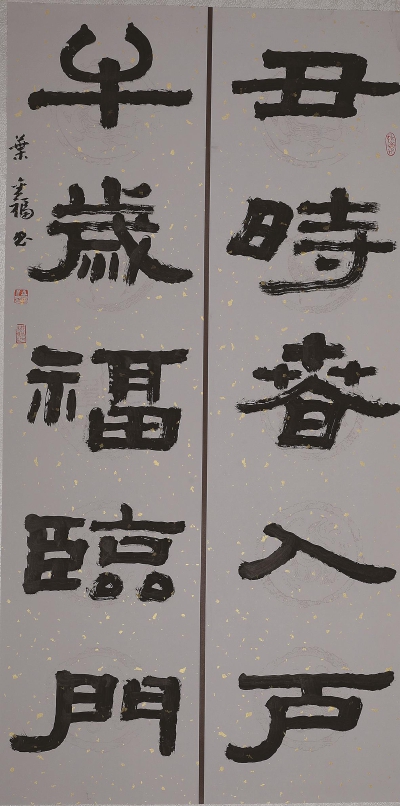 丑時春入户
牛歲福臨門
葉金福书